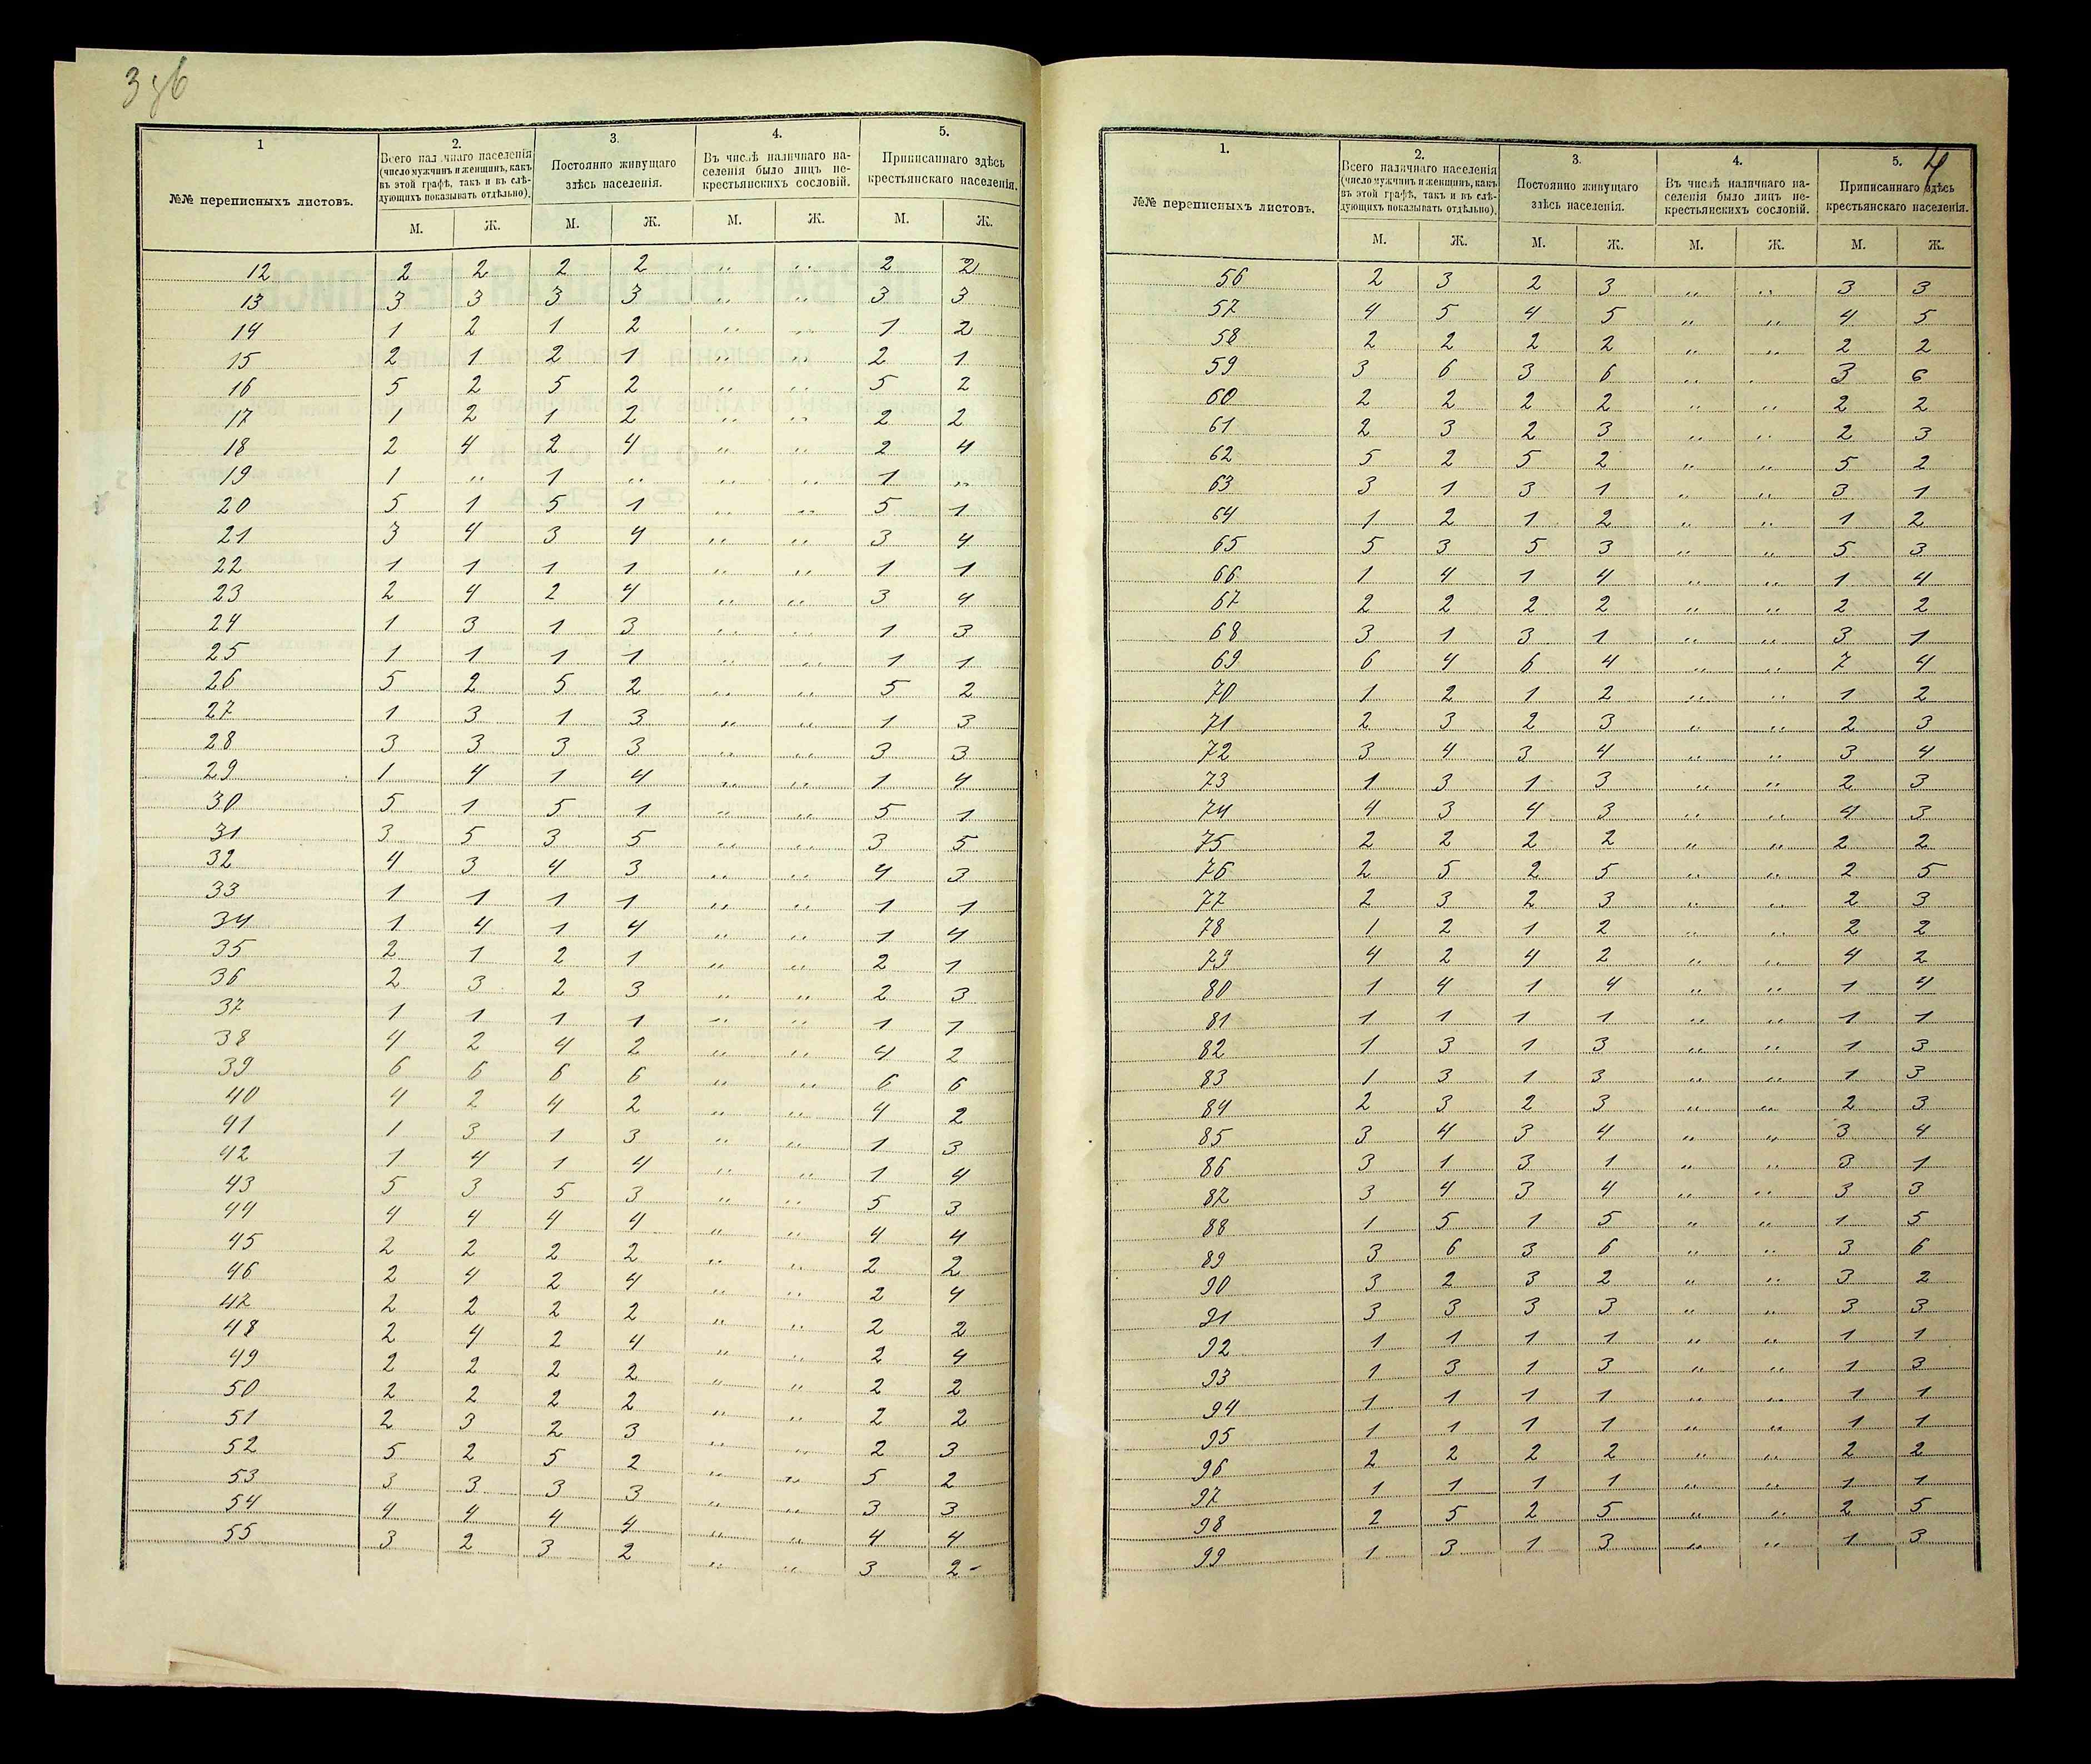 1
№№ переписныхъ листовъ.
2.
Всего наличнаго населенія
(число мужчинъ и женщинъ, какъ
въ этой графѣ, такъ и въ слѣ-
дующихъ показывать отдѣльно).
3.
Постоянно живущаго
здѣсь населенія.
4.
Въ числѣ наличнаго на-
селенія было лицъ не-
крестьянскихъ сословій.
5.
Приписаннаго здѣсь
крестьянскаго населенія.
М. Ж. М. Ж. М. Ж. М. Ж.
12 2 2 2 2 " " 2 2
13 3 3 3 3 " " 3 3
14 1 2 1 2 " " 1 2
15 2 1 2 1 " " 2 1
16 5 2 5 2 " " 5 2
17 1 2 1 2 " " 2 2
18 2 4 2 4 " " 2 4
19 1 " 1 " " " 1 "
20 5 1 5 1 " " 5 1
21 3 4 3 4 " " 3 4
22 1 1 1 1 " " 1 1
23 2 4 2 4 " " 3 4
24 1 3 1 3 " " 1 3
25 1 1 1 1 " " 1 1
26 5 2 5 2 " " 5 2
27 1 3 1 3 " " 1 3
28 3 3 3 3 " " 3 3
29 1 4 1 4 " " 1 4
30 5 1 5 1 " " 5 1
31 3 5 3 5 " " 3 5
32 4 3 4 3 " " 4 3
33 1 1 1 1 " " 1 1
34 1 4 1 4 " " 1 4
35 2 1 2 1 " " 2 1
36 2 3 2 3 " " 2 3
37 1 1 1 1 " " 1 1
38 4 2 4 2 " " 4 2
39 6 6 6 6 " " 6 6
40 4 2 4 2 " " 4 2
41 1 3 1 3 " " 1 3
42 1 4 1 4 " " 1 4
43 5 3 5 3 " " 5 3
44 4 4 4 4 " " 4 4
45 2 2 2 2 " " 2 2
46 2 4 2 4 " " 2 4
47 2 2 2 2 " " 2 2
48 2 4 2 4 " " 2 4
49 2 2 2 2 " " 2 2
50 2 2 2 2 " " 2 2
51 2 3 2 3 " " 2 3
52 5 2 5 2 " " 5 2
53 3 3 3 3 " " 3 3
54 4 4 4 4 " " 4 4
55 3 2 3 2 " " 3 2
4
1.
№№ переписныхъ листовъ.
2.
Всего наличнаго населенія
(число мужчинъ и женщинъ, какъ
въ этой графѣ, такъ и въ слѣ-
дующихъ показывать отдѣльно).
3.
Постоянно живущаго
здѣсь населенія.
4.
Въ числѣ наличнаго на-
селенія было лицъ не-
крестьянскихъ сословій.
5.
Приписаннаго здѣсь
крестьянскаго населенія.
М. Ж. М. Ж. М. Ж. М. Ж.
56 2 3 2 3 " " 3 3
57 4 5 4 5 " " 4 5
58 2 2 2 2 " " 2 2
59 3 6 3 6 " " 3 6
60 2 2 2 2 " " 2 2
61 2 3 2 3 " " 2 3
62 5 2 5 2 " " 5 2
63 3 1 3 1 " " 3 1
64 1 2 1 2 " " 1 2
65 5 3 5 3 " " 5 3
66 1 4 1 4 " " 1 4
67 2 2 2 2 " " 2 2
68 3 1 3 1 " " 3 1
69 6 4 6 4 " " 7 4
70 1 2 1 2 " " 1 2
71 2 3 2 3 " " 2 3
72 3 4 3 4 " " 3 4
73 1 3 1 3 " " 2 3
74 4 3 4 3 " " 4 3
75 2 2 2 2 " " 2 2
76 2 5 2 5 " " 2 5
77 2 3 2 3 " " 2 3
78 1 2 1 2 " " 2 2
79 4 2 4 2 " " 4 2
80 1 4 1 4 " " 1 4
81 1 1 1 1 " " 1 1
82 1 3 1 3 " " 1 3
83 1 3 1 3 " " 1 3
84 2 3 2 3 " " 2 3
85 3 4 3 4 " " 3 4
86 3 1 3 1 " " 3 1
87 3 4 3 4 " " 3 3
88 1 5 1 5 " " 1 5
89 3 6 3 6 " " 3 6
90 3 2 3 2 " " 3 2
91 3 3 3 3 " " 3 3
92 1 1 1 1 " " 1 1
93 1 3 1 3 " " 1 3
94 1 1 1 1 " " 1 1
95 1 1 1 1 " " 1 1
96 2 2 2 2 " " 2 2
97 1 1 1 1 " " 1 1
98 2 5 2 5 " " 2 5
99 1 3 1 3 " " 1 3